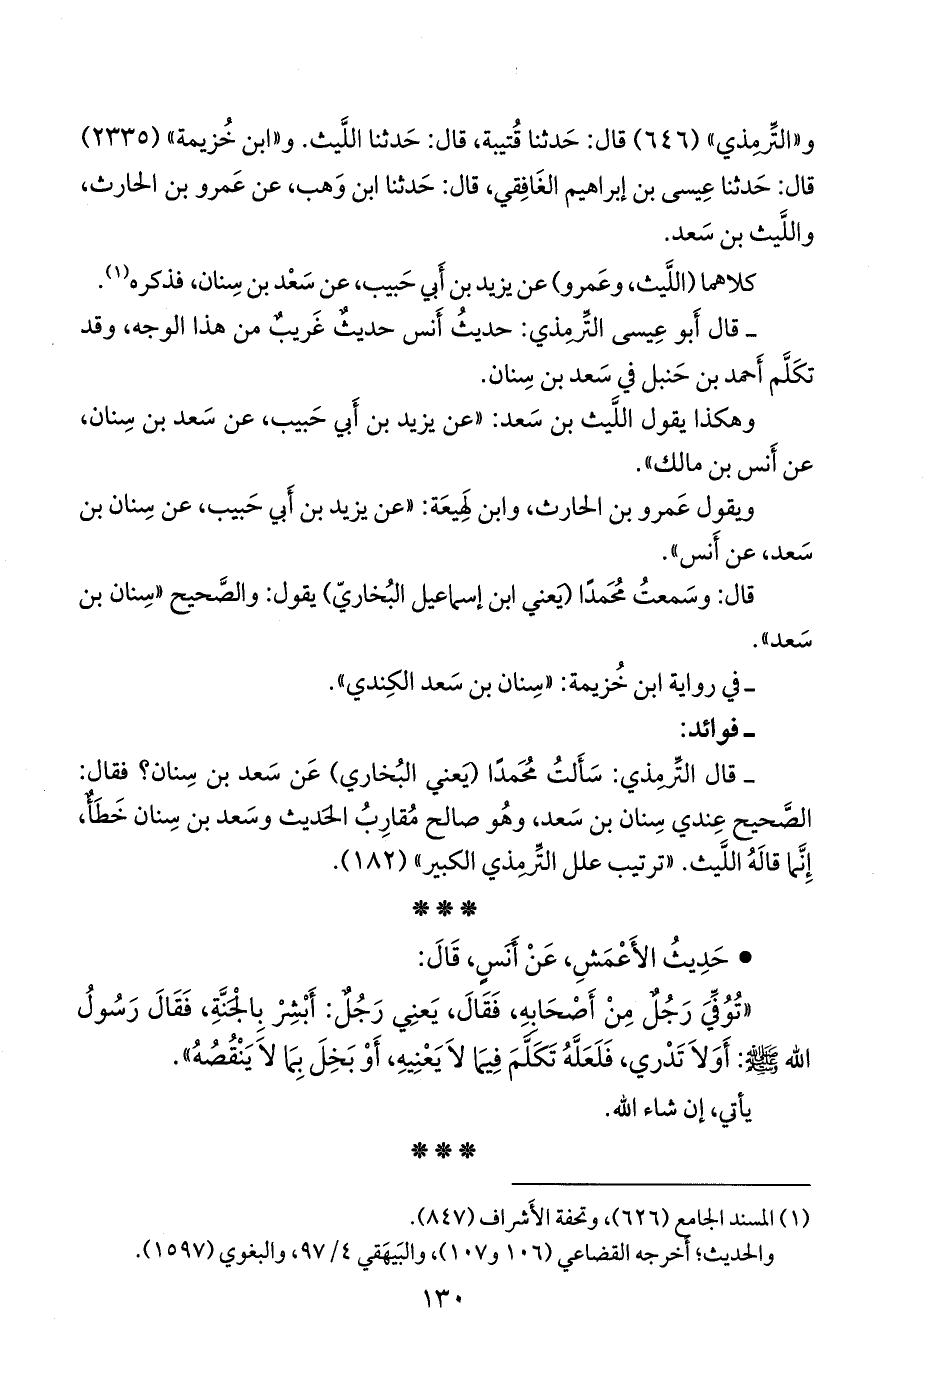 و«التِّرمِذي» (٦٤٦) قال: حَدثنا قُتيبة، قال: حَدثنا اللَّيث. و«ابن خُزيمة» (٢٣٣٥)
قال: حَدثنا عِيسى بن إبراهيم الغَافِقي، قال: حَدثنا ابن وَهب، عن عَمرو بن الحارث،
واللَّيث بن سَعد.
كلاهما (اللَّيث، وعَمرو) عن يزيد بن أَبي حَبيب، عن سَعْد بن سِنان، فذكره(١).
ـ قال أَبو عِيسى التِّرمِذي: حديثُ أَنس حديثٌ غَريبٌ من هذا الوجه، وقد
تكَلَّم أَحمد بن حَنبل في سَعد بن سِنان.
وهكذا يقول اللَّيث بن سَعد: «عن يزيد بن أَبي حَبيب، عن سَعد بن سِنان،
عن أَنس بن مالك».
ويقول عَمرو بن الحارث، وابن لَهِيعَة: «عن يزيد بن أَبي حَبيب، عن سِنان بن
سَعد، عن أَنس».
قال: وسَمعتُ مُحَمدًا (يَعني ابن إسماعيل البُخاريّ) يقول: والصَّحيح «سِنان بن
سَعد».
ـ في رواية ابن خُزيمة: «سِنان بن سَعد الكِندي».
ـ فوائد:
ـ قال التِّرمِذي: سَأَلتُ مُحَمدًا (يَعني البُخاري) عَن سَعد بن سِنان؟ فقال:
الصَّحيح عِندي سِنان بن سَعد، وهُو صالح مُقارِبُ الحَديث وسَعد بن سِنان خَطَأٌ،
إِنَّما قالَهُ اللَّيث. «ترتيب علل التِّرمِذي الكبير» (١٨٢).
* * *
• حَدِيثُ الأَعْمَشِ، عَنْ أَنَسٍ، قَالَ:
«تُوُفِّيَ رَجُلٌ مِنْ أَصْحَابِهِ، فَقَالَ، يَعنِي رَجُلٌ: أَبْشِرْ بِالْجَنَّةِ، فَقَالَ رَسُولُ
الله ﷺ: أَوَلاَ تَدْرِي، فَلَعَلَّهُ تَكَلَّمَ فِيمَا لاَ يَعْنِيهِ، أَوْ بَخِلَ بِمَا لاَ يَنْقُصُهُ».
يأتي، إن شاء الله.
* * *
(١) المسند الجامع (٦٢٦)، وتحفة الأَشراف (٨٤٧).
والحديث؛ أخرجه القضاعي (١٠٦ و١٠٧)، والبَيهَقي ٤/ ٩٧، والبغوي (١٥٩٧).
١٣٠